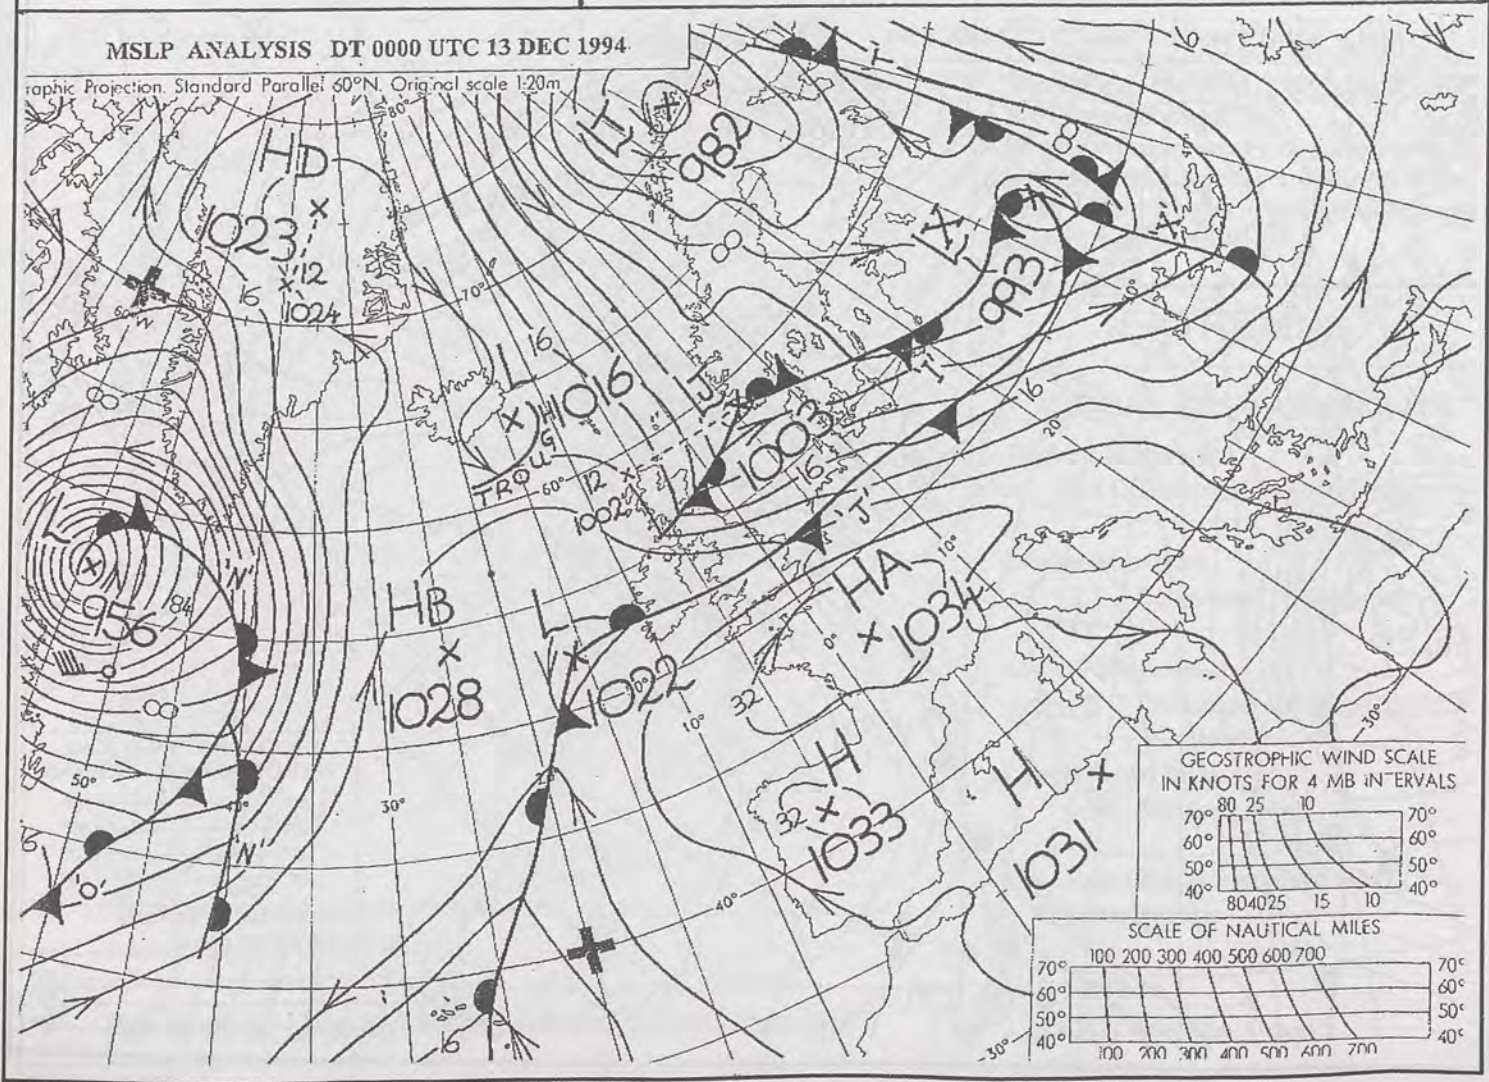 MSLP ANALYSIS DT 0000 UTC 13 DEC 1994
raphic Projection. Standard Parallel 60°N. Original scale 1:20m
80°
L
982
T
16
HD
1023
12
1024
16
8
8
X
L
993
'X'
70°
60°
W
L
16
1016
TROUGH
60°
12
1002
L
'J'
1003
16
T
16
20
8
L
N
956
84
'N'
8
HB
1028
L
1022
'J'
HA
1034
10°
0°
32
10°
H
32
1033
H
1031
30°
50°
40°
30°
20
16
'O'
'N'
40°
16
30°
GEOSTROPHIC WIND SCALE
IN KNOTS FOR 4 MB INTERVALS
80 25 10
70° 70°
60° 60°
50° 50°
40° 40°
80 40 25 15 10
SCALE OF NAUTICAL MILES
100 200 300 400 500 600 700
70° 70°
60° 60°
50° 50°
40° 40°
100 200 300 400 500 600 700